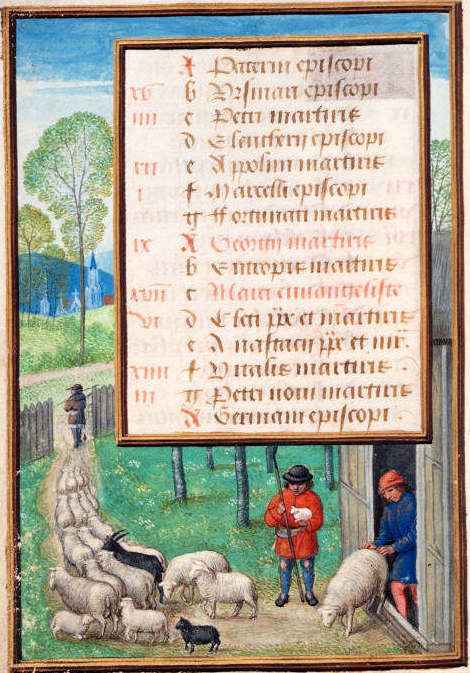 A Paterni episcopi
xv b Vrsmari episcopi
iiii c Petri martiris
d Eleutherii episcopi
xii e Appolini martiris
i f Marcelli episcopi
g ffortunati martiris
ix A Georgii martiris
b Eutropii martiris
xvii c Marci euuangeliste
vi d Cleti ppe et martiris
e Anastacii ppe et mr.
xiiii f Vitalis martiris
iii g Petri noui martiris
A Germani episcopi